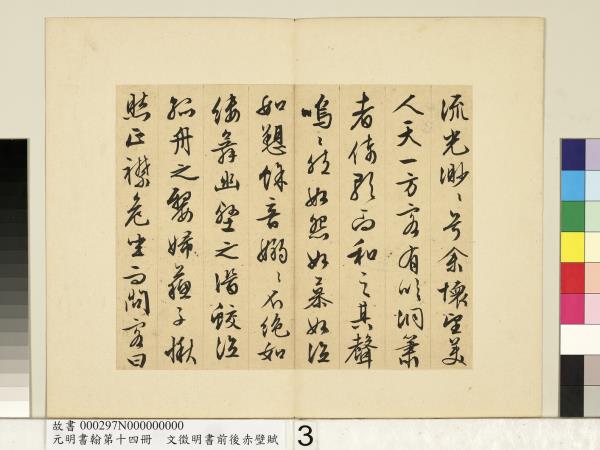 流光渺〻兮余懷望美
人天一方客有吹洞簫
者倚歌而和之其聲
嗚〻然如怨如慕如泣
如愬餘音嫋〻不絕如
縷舞幽壑之潛蛟泣
孤舟之嫠婦蘇子愀
然正襟危坐而問客曰
故書 000297N000000000
元明書翰第十四冊 文徵明書前後赤壁賦
3